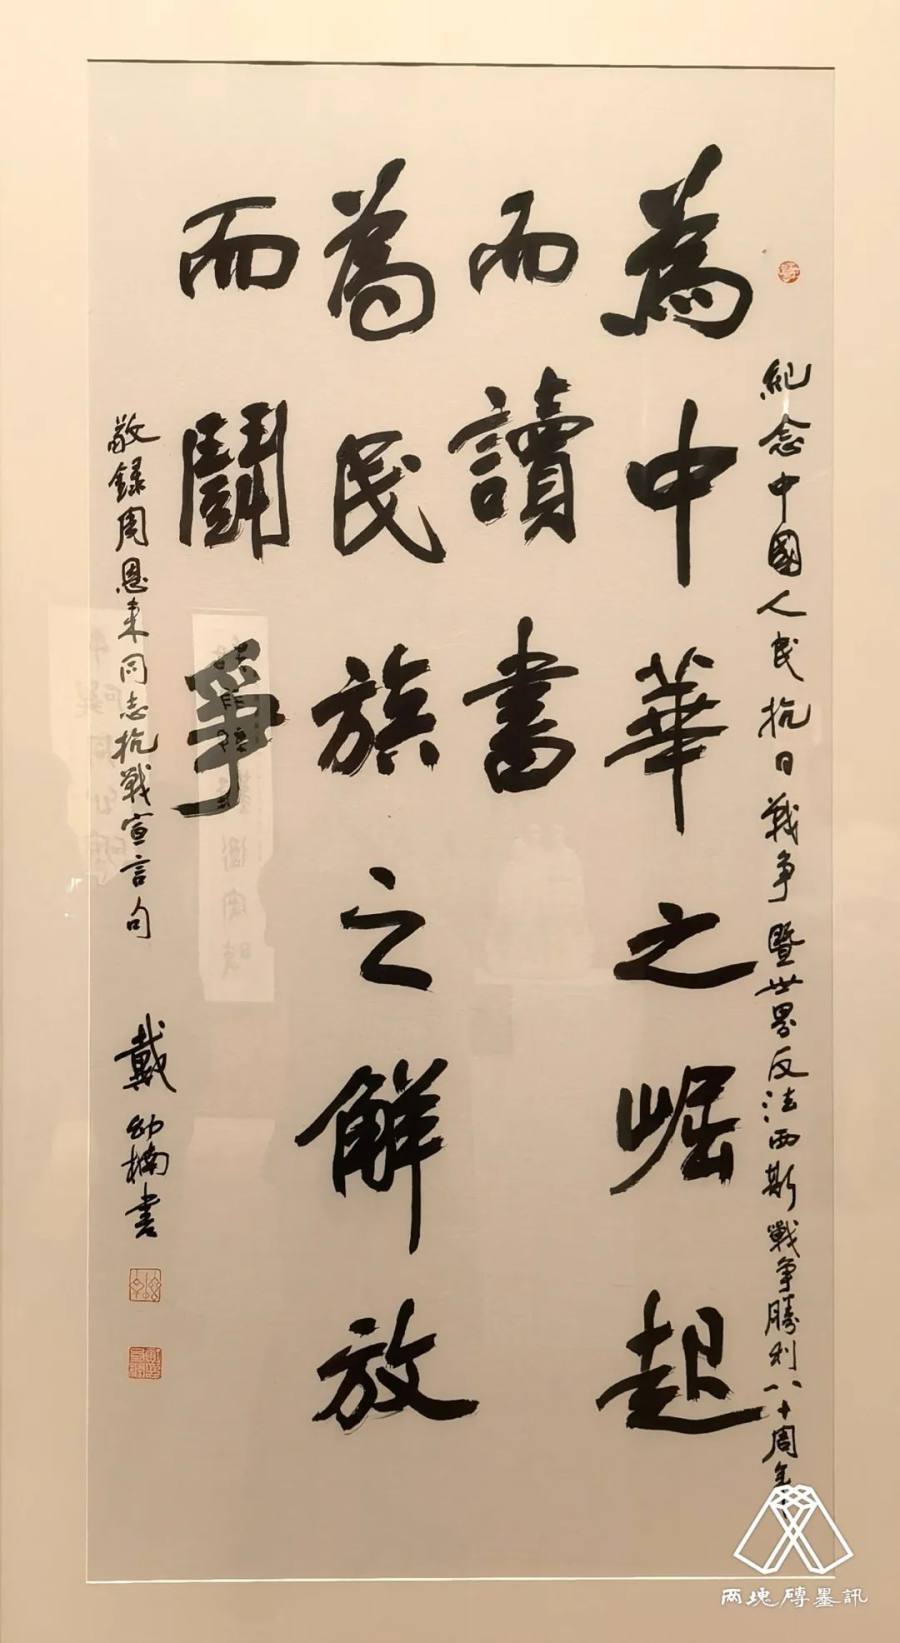 紀念中國人民抗日戰爭暨世界反法西斯戰爭勝利八十周年
為中華之崛起
而讀書
為民族之解放
而鬭爭
敬錄周恩来同志抗戰宣言句
戴幼楠書
两塊磚墨訊